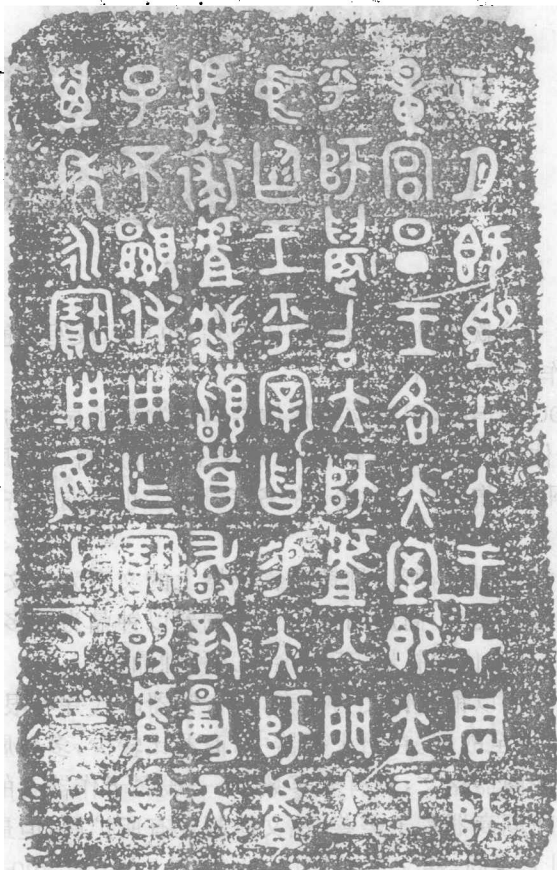 正月既望甲午王才周師
量宮旦王各大室即立王
乎師晨召大師虘入門立
中廷王乎宰曶易大師虘
虎裘虘拜䭫首敢對揚天
子不顯休用乍寶𣪘虘其
萬年永寶用隹十又二年